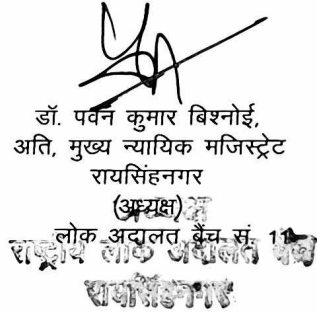 डॉ. पवन कुमार बिश्नोई,
अति, मुख्य न्यायिक मजिस्ट्रेट
रायसिंहनगर
(अध्यक्ष)
अध्यक्ष
लोक अदालत बैंच सं. 11
राष्ट्रीय लोक अदालत बैंच
रायसिंहनगर